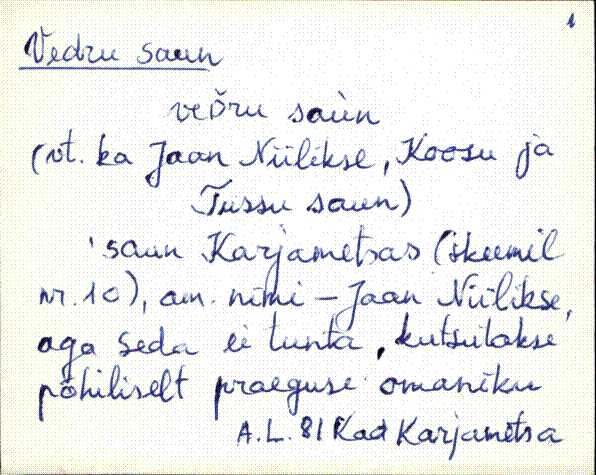 1
Vedru saun
veďru saùn
(vt. ka Jaan Niilikse, Koosu ja
Tussu saun)
'saun Karjametsas (skeemil
nr. 10), am. nimi – Jaan Niilikse,
aga seda ei tunta, kutsutakse
põhiliselt praeguse omaniku
A.L. 81 Kad Karjametsa